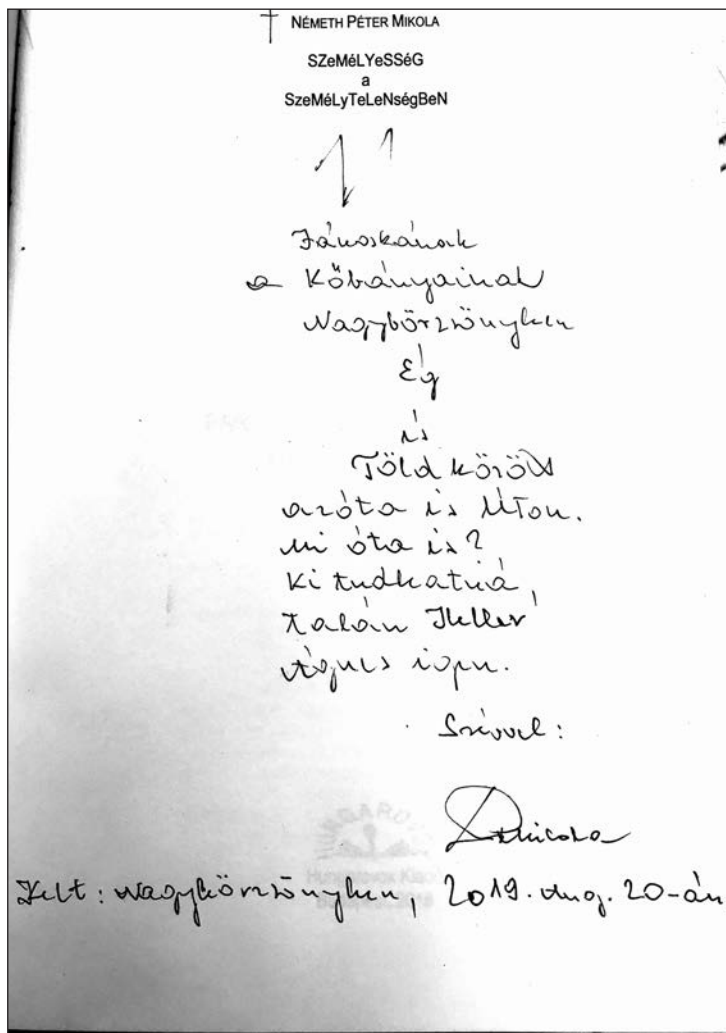 NÉMETH PÉTER MIKOLA
SZeMéLYeSSéG
a
SzeMéLyTeLeNségBeN
Jánoskának
a Kőbányainak
Nagybörzsönyben
Ég
és
Föld között
azóta is Úton.
Mi óta is?
Ki tudhatná,
talán Heller
Ágnes igen.
Szívvel:
Mikola
Kelt: Nagybörzsönyben, 2019. Aug. 20-án